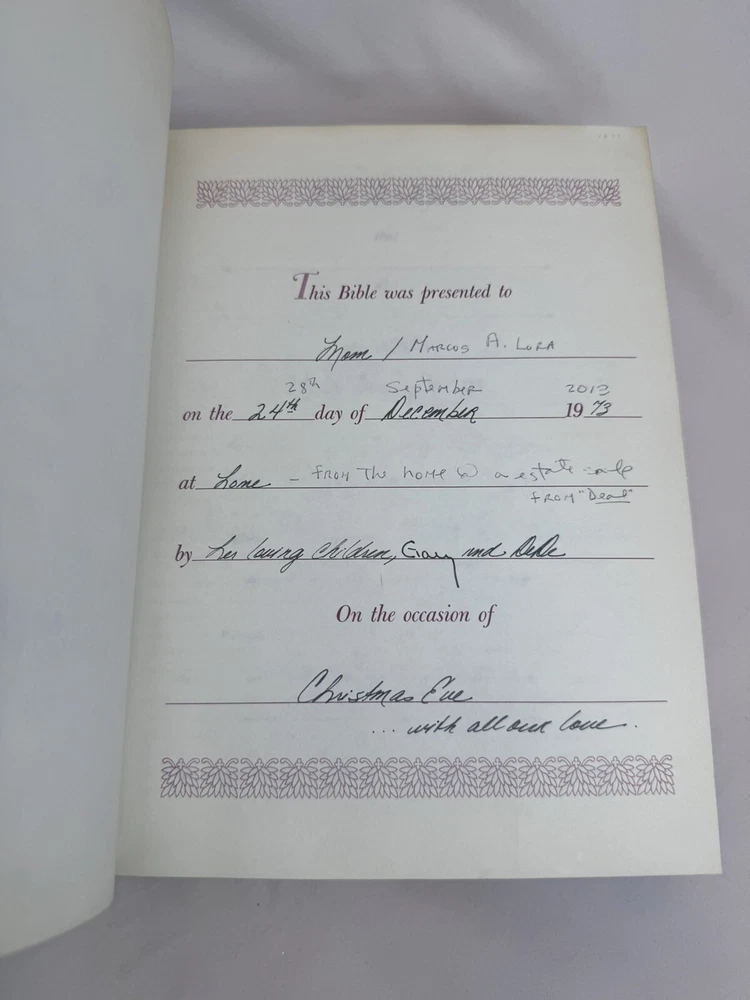 This Bible was presented to
Mom / Marcos A. Lora
28th September 2013
on the 24th day of December 1973
at Home - from the home w a estate sale
from "Dear"
by her loving children, Gary and DeDe
On the occasion of
Christmas Eve
... with all our love.